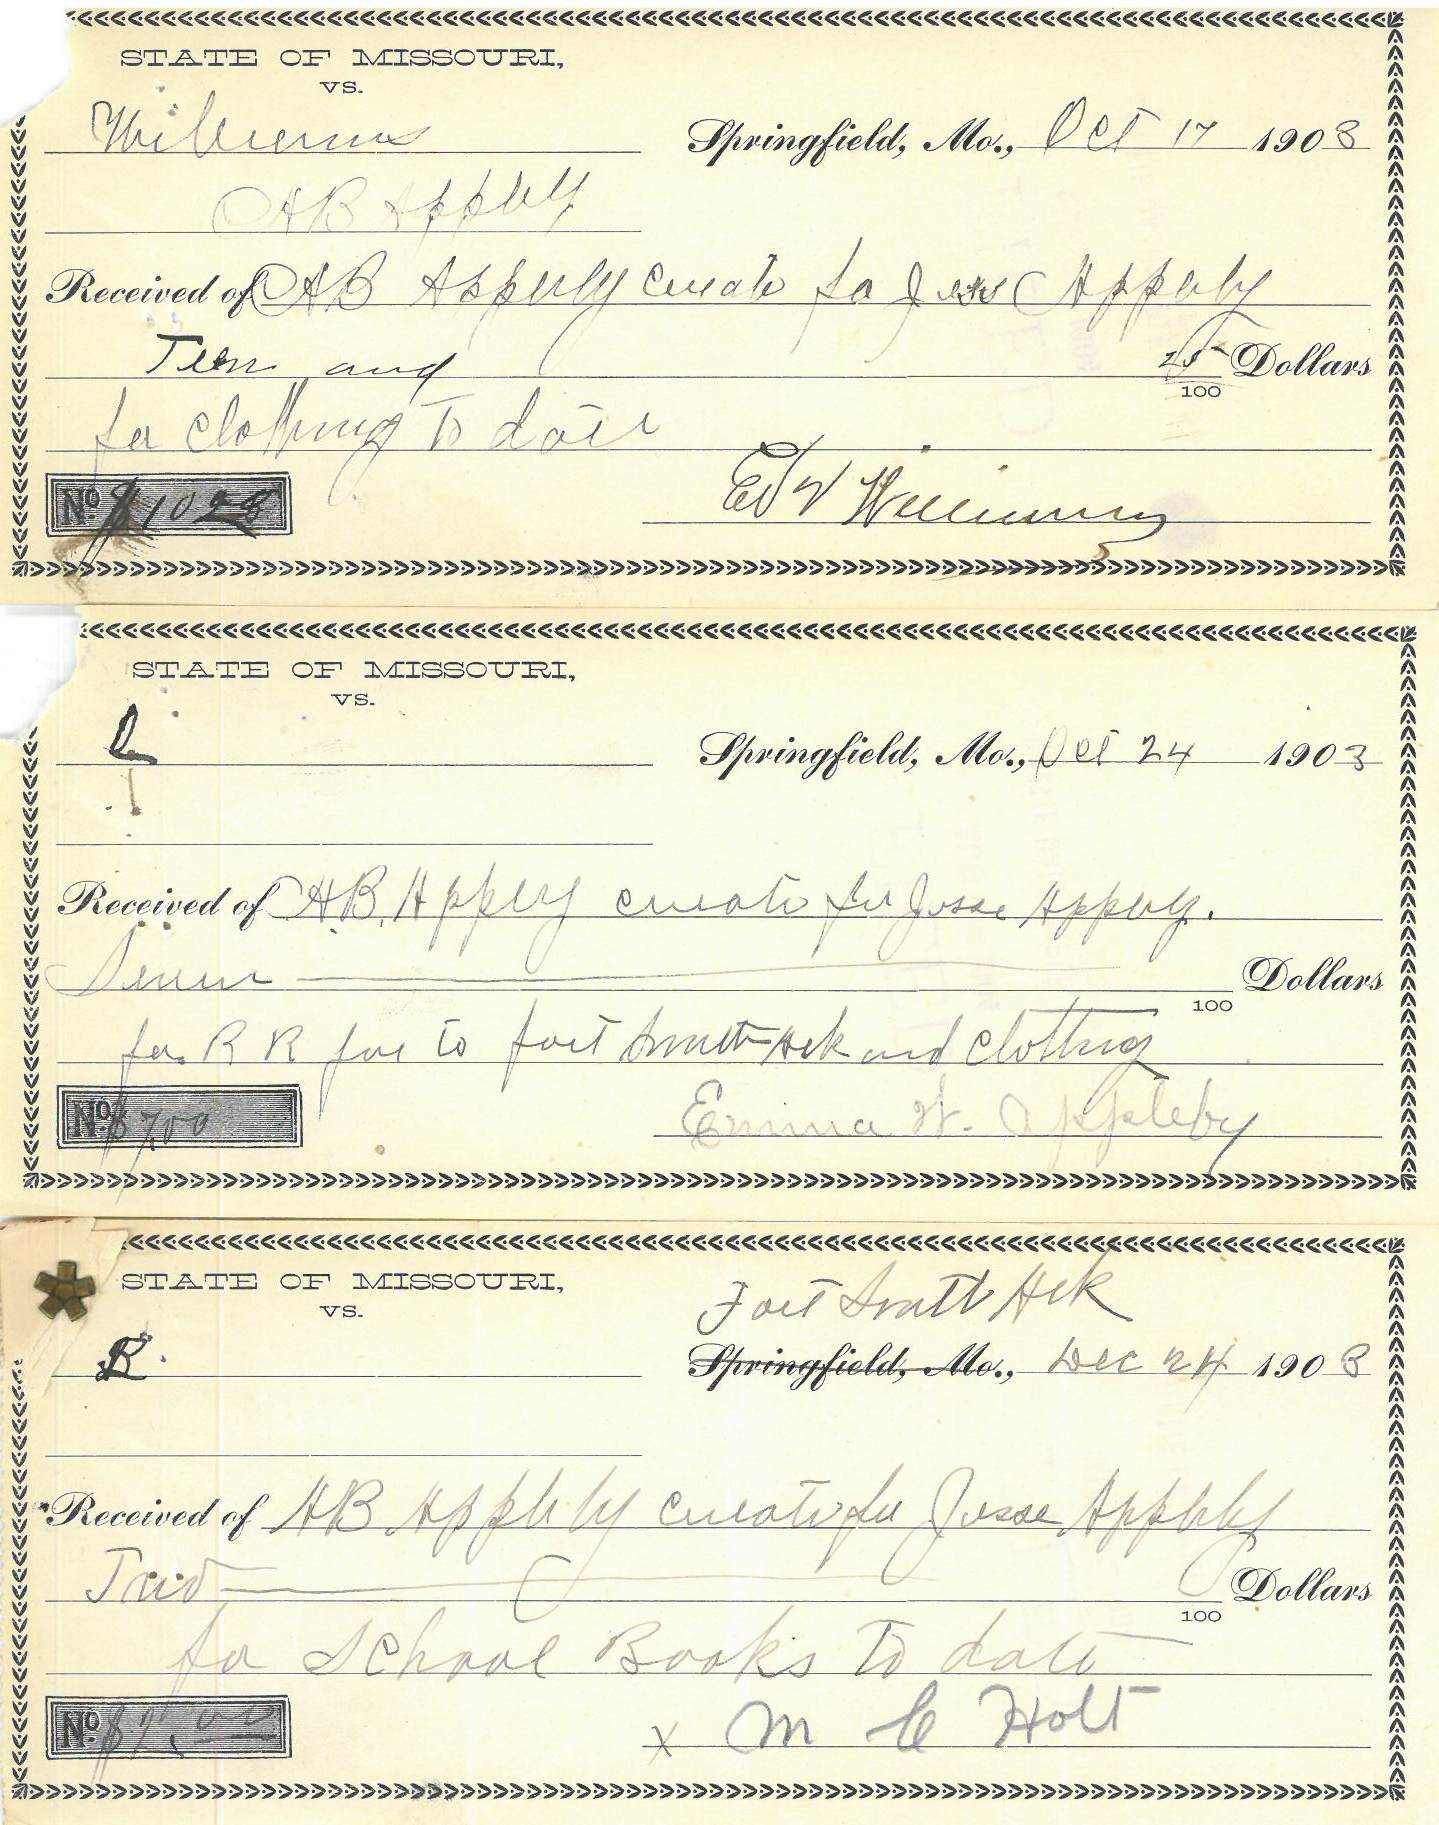 STATE OF MISSOURI,
VS.
Williams
Springfield, Mo., Oct 17 1903
AB Appleby
Received of AB Apperly curato for Jess Appleby
Ten and 25/100 Dollars
for clothing To date
No $10 25
Ed V Williams
STATE OF MISSOURI,
VS.
Springfield, Mo., Oct 24 1903
Received of AB. Apply curato for Jesse Apply.
Seven 100 Dollars
for R R far to fort Smith Ark and Clothing
No $7.00
Emma W. Appleby
STATE OF MISSOURI,
VS.
Fort Smith Ark
B
Springfield, Mo., Dec 24 1903
Received of AB Appleby curato for Jesse Appleby
100 Dollars
for School Books To date
No $2.00
x M C Holt